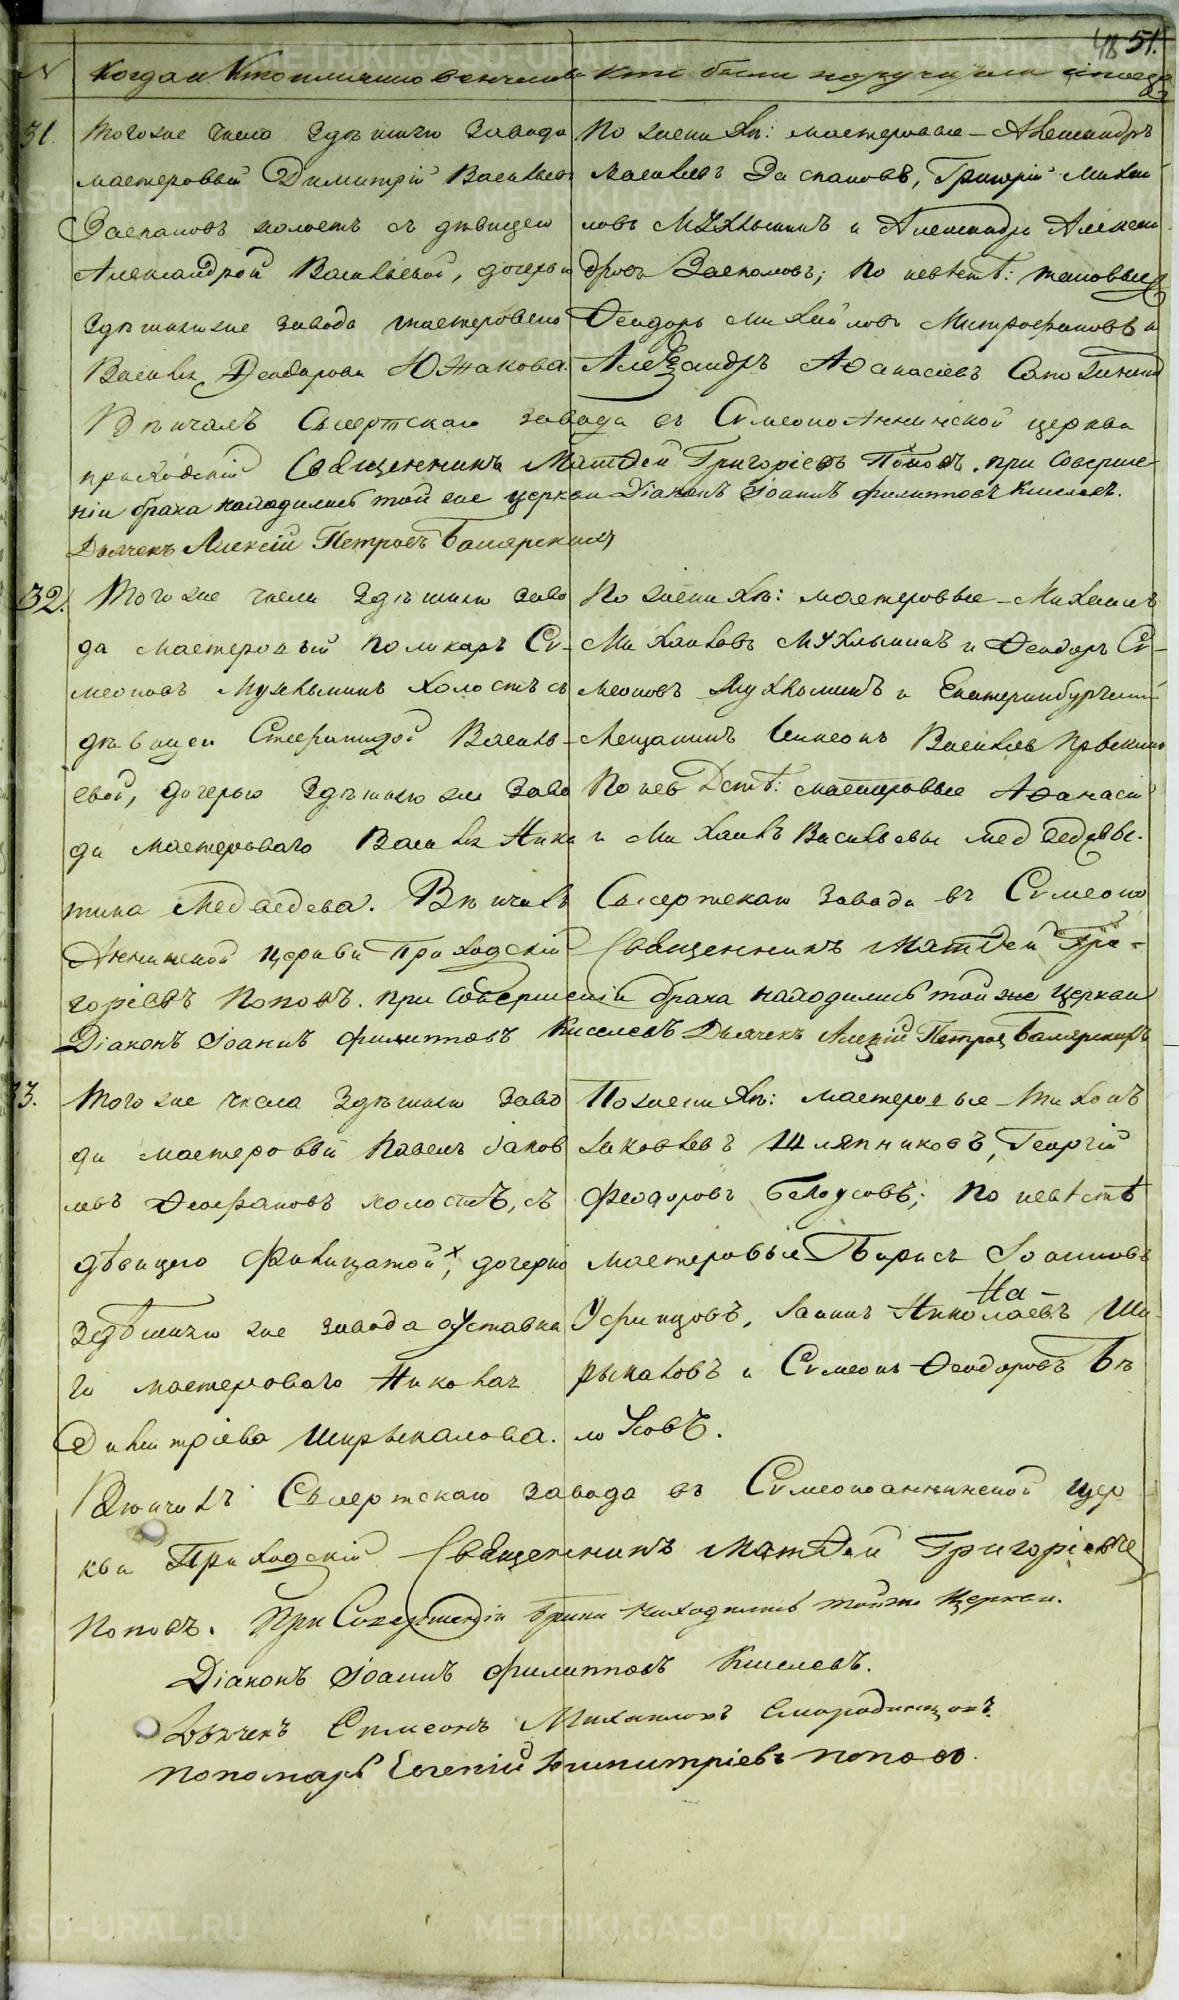 48 51.
N Когда и Кто имянно венчаны Кто были поручители и поезд
31. Тогоже числа Здѣшняго Завода
мастеровый Димитрій Васильевъ
Заспановъ холостъ съ дѣвицею
Александрой Васильевой, дочерью
Здѣшняго же завода мастероваго
Василья Ѳеодорова Южакова.
По женихѣ: мастеровые – Александръ
Васильевъ Заспановъ, Григорій Михаи
ловъ Мухлынинъ и Александръ Алексан
дровъ Заспановъ; По невѣстѣ: таковые
Ѳеодоръ Михайловъ Митрофановъ и
Александръ Аѳанасіевъ
Вѣнчалъ Сысертскаго завода въ Сѵмеоно Аннинской церкви
приходскій Священникъ Матѳей Григоріевъ Поповъ. при Соверше
ніи брака находились той же церкви Діаконъ Іоаннъ Филипповъ Киселевъ.
Дьячекъ Алексій Петровъ Боярскихъ
32. Того же числа Здѣшняго Заво
да мастеровый Поликарпъ Сѵ-
меоновъ Мухлынинъ холостъ съ
дѣвицей Степанидой Василь-
евой, дочерью Здѣшняго же Заво
да мастероваго Василья Ники
тина Медведева. Вѣнчалъ
По женихѣ: мастеровые – Михаилъ
Михаиловъ Мухлынинъ и Ѳеодоръ Сѵ-
меоновъ Мухлынинъ и Екатеринбургскій
Мещанинъ Симеонъ Васильевъ
По невѣстѣ: мастеровые Аѳанасій
и Михаилъ Васильевы Медведевы.
Сысертскаго Завода въ Сѵмеоно
Аннинской Церкви Приходскій Священникъ Матѳей Гри-
горіевъ Поповъ. при Совершеніи брака находились той же Церкви
Діаконъ Іоаннъ Филипповъ Киселевъ Дьячекъ Алексій Петровъ Боярскихъ
33. Того же числа Здѣшняго Заво
да мастеровый Павелъ Іаков
левъ Ѳеофановъ холостъ, съ
дѣвицею Филицатой х, дочерью
Здѣшняго же завода Уставна
го мастероваго Николая
Димитріева Ширыкалова.
По женихѣ: мастеровые – Тихонъ
Іаковлевъ Шляпниковъ, Георгій
Феодоровъ Белоусовъ; По невѣстѣ
мастеровые Борисъ Іоанновъ
На-
Уфинцовъ, Іоаннъ Николаевъ Ши
рыкаловъ и Сѵмеонъ Ѳеодоровъ Бѣ
лоусовъ.
Вѣнчалъ Сысертскаго завода въ Сѵмеоноаннинской цер
кви Приходскій Священникъ Матѳей Григоріевъ
Поповъ. При Совершеніи брака находились тойже Церкви.
Діаконъ Іоаннъ Филипповъ Киселевъ.
Дьячекъ Симеонъ Михаиловъ Смородинцовъ.
пономарь Евгеній Димитріевъ Поповъ.
METRIKI.GASO-URAL.RU